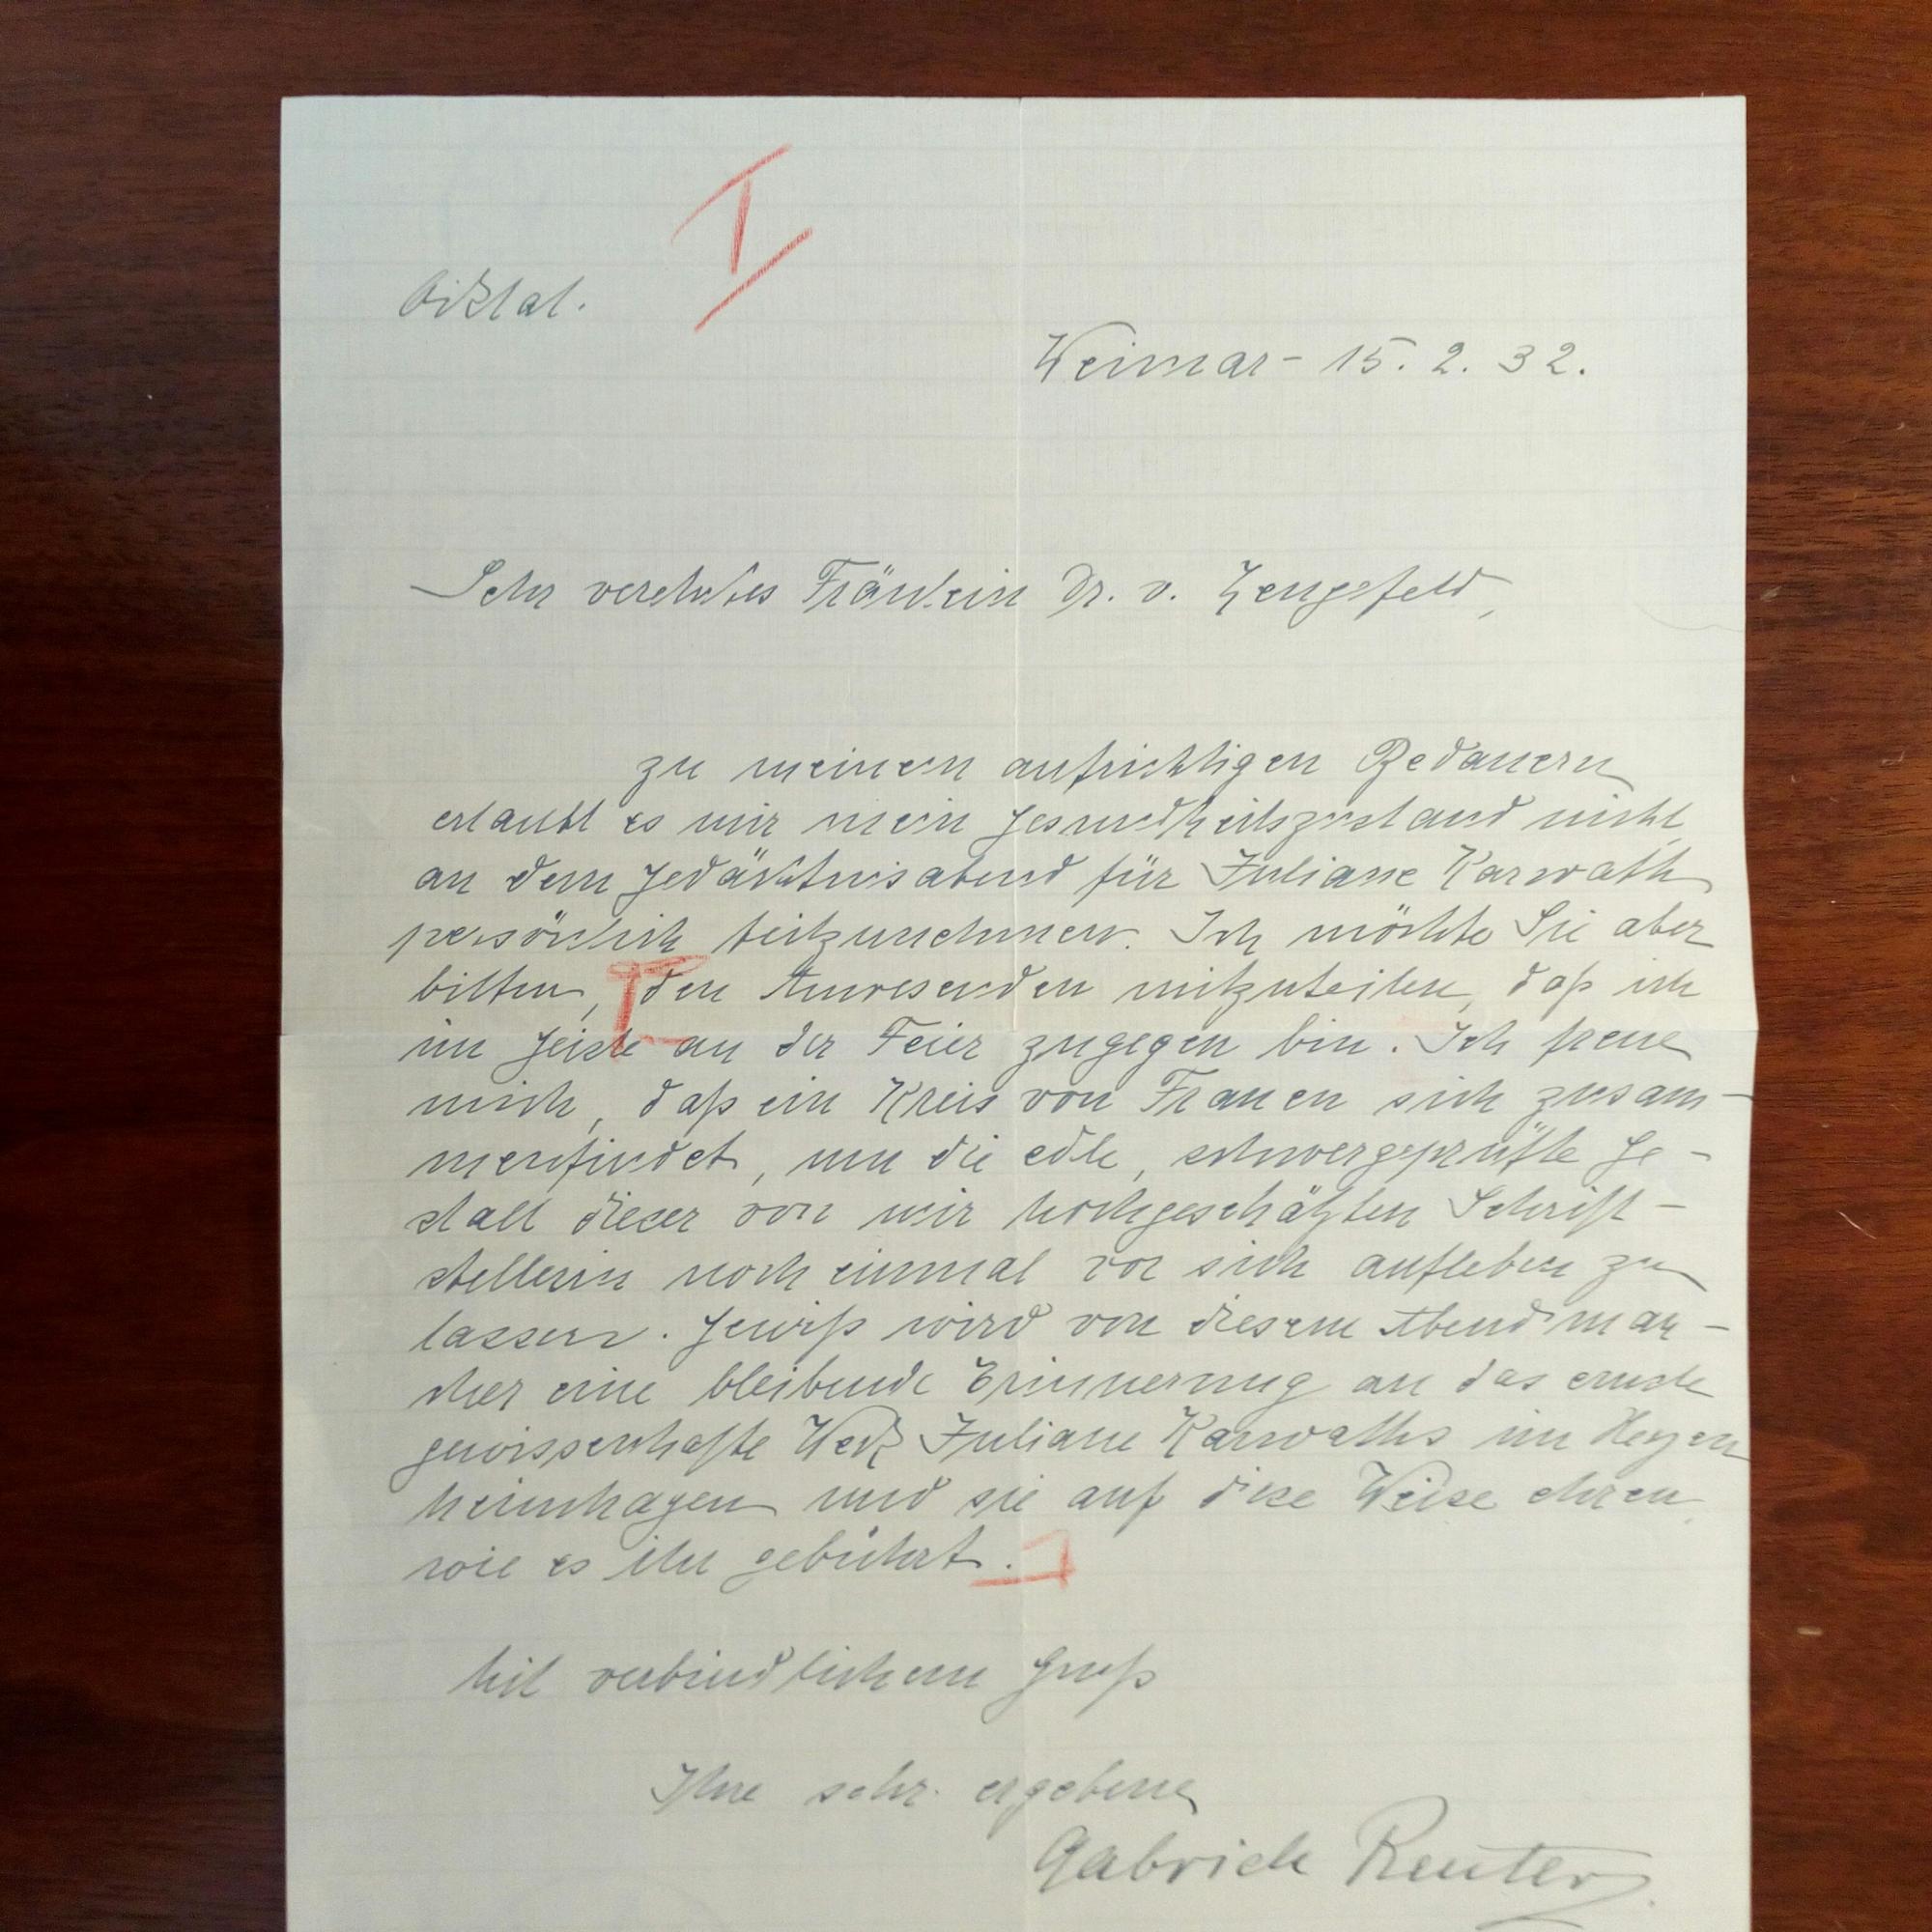 I
Diktat.
Weimar - 15. 2. 32.
Sehr verehrtes Fräulein Dr. v. Lengefeld,
zu meinem aufrichtigen Bedauern
erlaubt es mir mein Gesundheitszustand nicht,
an dem Gedächtnisabend für Juliane Karwath
persönlich teilzunehmen. Ich möchte Sie aber
bitten, den Anwesenden mitzuteilen, daß ich
im Geiste an der Feier zugegen bin. Ich freue
mich, daß ein Kreis von Frauen sich zusam-
menfindet, um die edle, schwergeprüfte Ge-
stalt dieser von mir hochgeschätzten Schrift-
stellerin noch einmal vor sich aufleben zu
lassen. Gewiß wird von diesem Abend man-
cher eine bleibende Erinnerung an das ernste
gewissenhafte Werk Juliane Karwaths im Herzen
heimtragen und sie auf diese Weise ehren,
wie es ihr gebührt.
Mit verbindlichem Gruß
Ihre sehr ergebene
Gabriele Reuter